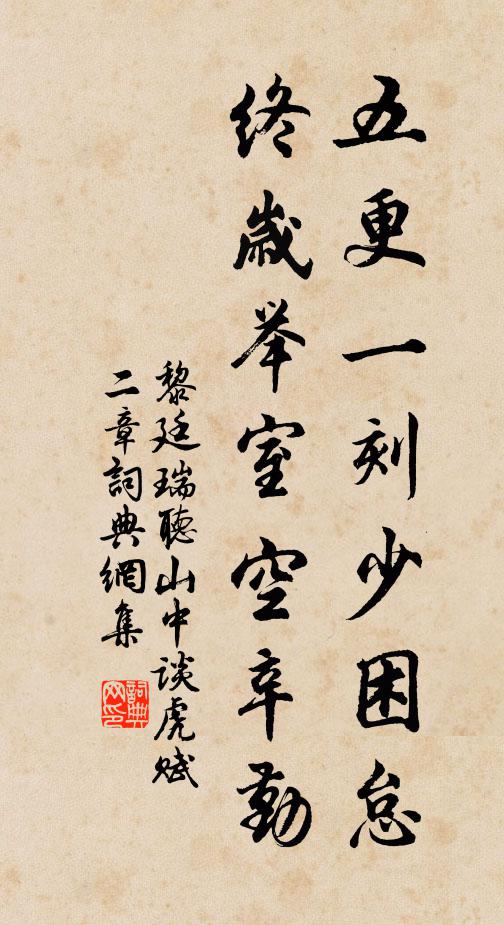 五更一刻少困怠
終歲举室空辛勤
黎廷瑞聽山中談虎賦
二章詞典網集
詞典
网印